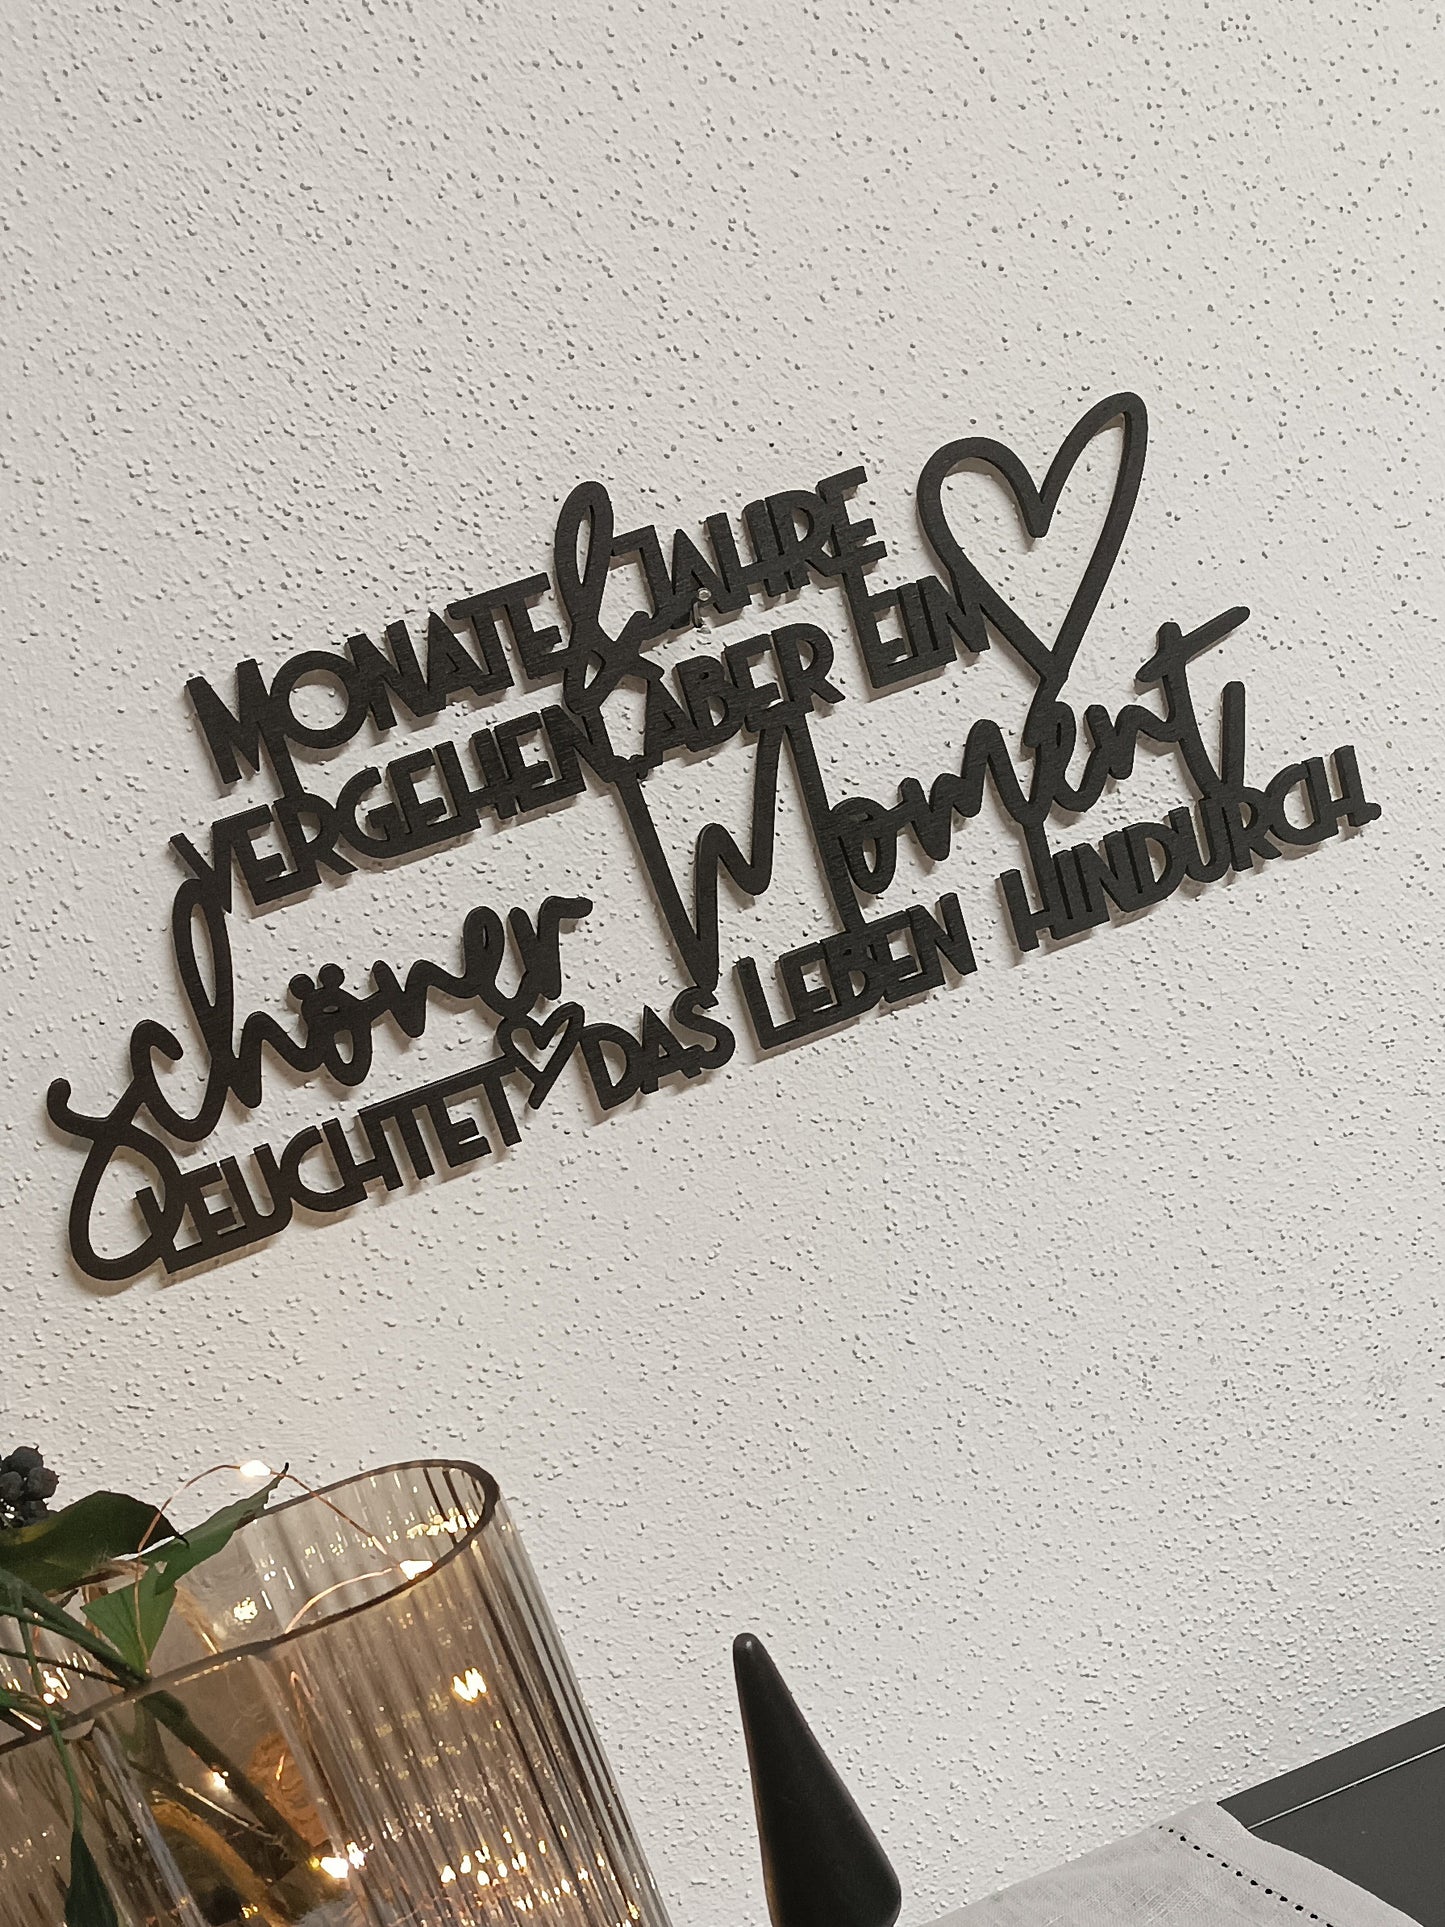 MONATE & JAHRE
VERGEHEN, ABER EIN
schöner Moment
LEUCHTET DAS LEBEN HINDURCH.